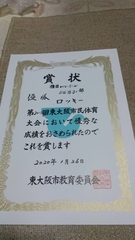 賞状
優勝
ロッキー
東大阪市民体育
大会において優秀な
成績をおさめられたので
これを賞します
2020年1月26日
東大阪市教育委員会